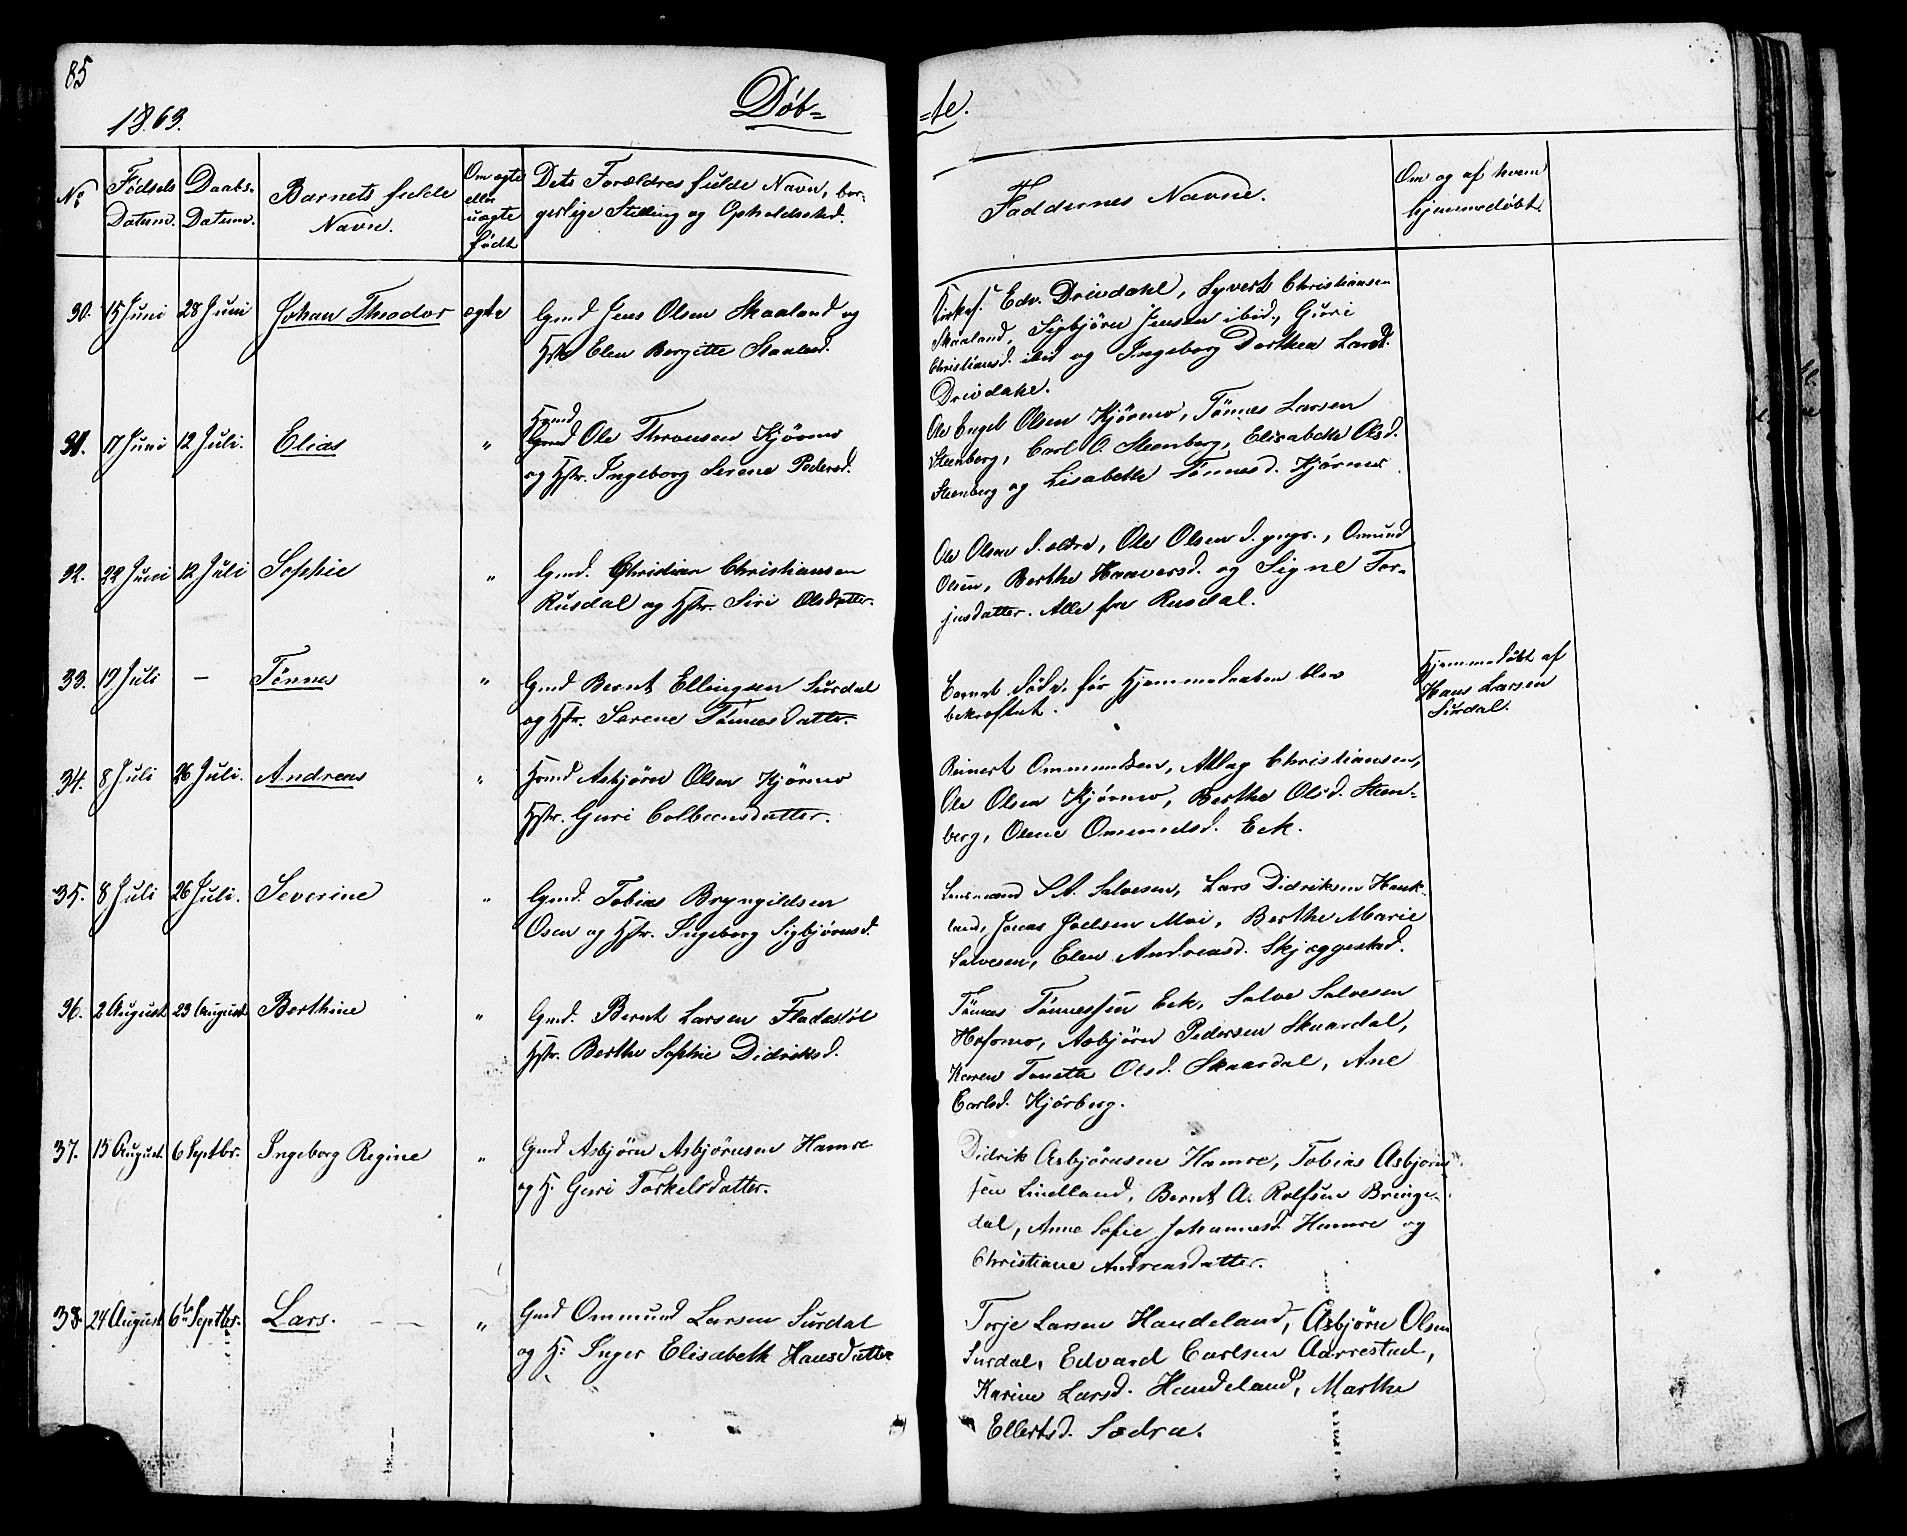 85
1863.
Døb=
=te.
No
Fødsels Datum.
Daabs- Datum.
Barnets fulde Navn.
Om ægte eller uægte født
Dets Forældres fulde Navn, bor-
gerlige Stilling og Opholdssted.
Faddernes Navne.
Om og af hvem
hjemmedøbt.
30. 15 Juni 28 Juni Johan Theodor ægte Gmd Jens Olsen Skaaland og
Hstr Elen Bergitte Staalesd.
Kirkes. Edv. Drivdahl, Syvert Christiansen
Skaaland, Sigbjörn Jensen ibid., Guri
Christiansd. ibid og Ingeborg Dorthea Larsd.
Drivdahl.
31. 17 Juni 12 Juli. Elias " Hmd
Ole Thronsen Kjörmo
og Hstr. Ingeborg Serene Pedersd.
Ole Engel Olsen Kjörmo, Tönnes Larsen
Steenberg, Carl O. Steenberg, Elisabeth Olsd.
Steenberg og Lisabeth Tönnesd. Kjörmo
32. 22 Juni 12 Juli Sophie " Gmd. Christian Christiansen
Rusdal og Hstr. Siri Olsdatter.
Ole Olsen d. ældre, Ole Olsen d. yngr., Omund
Olsen, Berthe Haaversd. og Signe Tor-
jusdatter. Alle fra Rusdal.
33. 19 Juli — Tönnes " Gmd Bernt Ellingsen Surdal
og Hstr. Serene Tönnesdatter.
Barnet døde før Hjemmedaaben blev
bekræftet.
Hjemmedøbt af
Hans Larsen
Surdal.
34. 8 Juli 26 Juli. Andreas " Hmd Asbjörn Olsen Kjörmo
Hstr. Guri Colbeensdatter.
Reinert Ommundsen, Atlag Christiansen,
Ole Olsen Kjörmo, Berthe Olsd. Steen-
berg, Olene Ommundsd. Eek.
35. 8 Juli 26 Juli. Severine " Gmd. Tobias Bryngildsen
Osen og Hstr. Ingeborg Sigbjörnsd.
Lensmand S. A. Salvesen, Lars Didriksen Hauk-
land, Jonas Joelsen Moi, Berthe Marie
Salvesen, Elen Andreasd. Skjæggestad.
36. 2 August 23 August Berthine " Gmd. Bernt Larsen Fladstöl
Hstr. Berthe Sophie Didriksd.
Tönnes Tönnessen Eek, Salve Salvesen
Hofsmo, Asbjörn Pedersen Skaardal,
Karen Tonette Olsd. Skaardal, Ane
Carlsd. Kjörberg.
37. 15 August 6 Septbr. Ingeborg Regine " Gmd Asbjörn Asbjörnsen Hamre
og H. Guri Torkelsdatter.
Didrik Asbjörnsen Hamre, Tobias Asbjörn-
sen Lindland, Bernt A. Rolfsen Bringe-
dal, Anne Sofie Johannesd. Hamre og
Christiane Andreasdatter.
38. 24 August 6te Septbr. Lars. " Gmd Ommund Larsen Surdal
og H: Inger Elisabeth Hansdatter
Terje Larsen Handeland, Asbjörn Olsen
Surdal, Edvard Carlsen Aarrestad,
Karine Larsd. Handeland, Marthe
Ellertsd. Sodra.